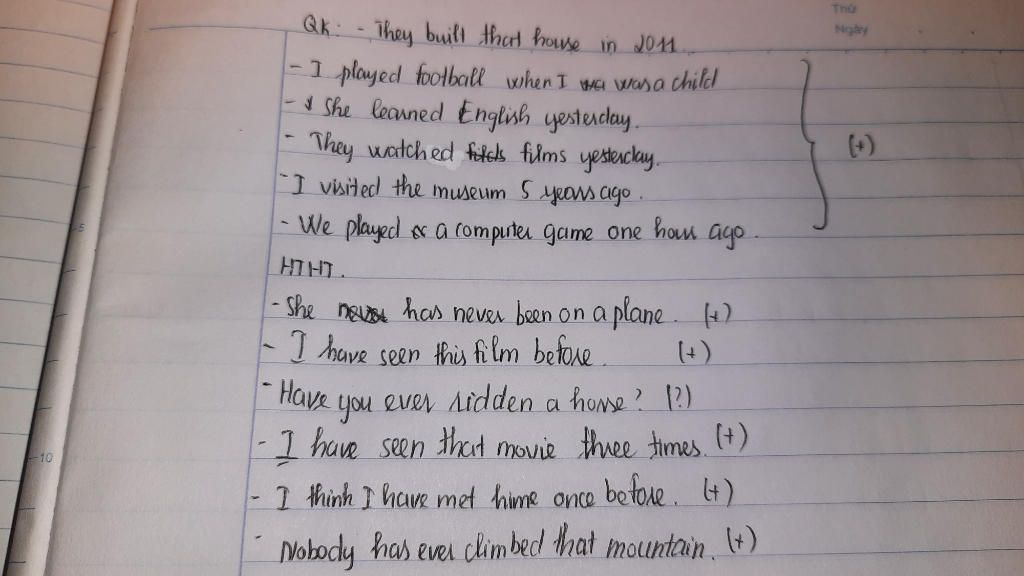 Thứ
Ngày
QK: - They built that house in 2011
- I played football when I was a child
- She learned English yesterday.
- They watched films yesterday.
- I visited the museum 5 years ago.
- We played a computer game one hour ago.
(+)
HTHT.
- She has never been on a plane. (+)
- I have seen this film before. (+)
- Have you ever ridden a horse? (?)
- I have seen that movie three times. (+)
- I think I have met hime once before. (+)
- Nobody has ever climbed that mountain. (+)
5
10